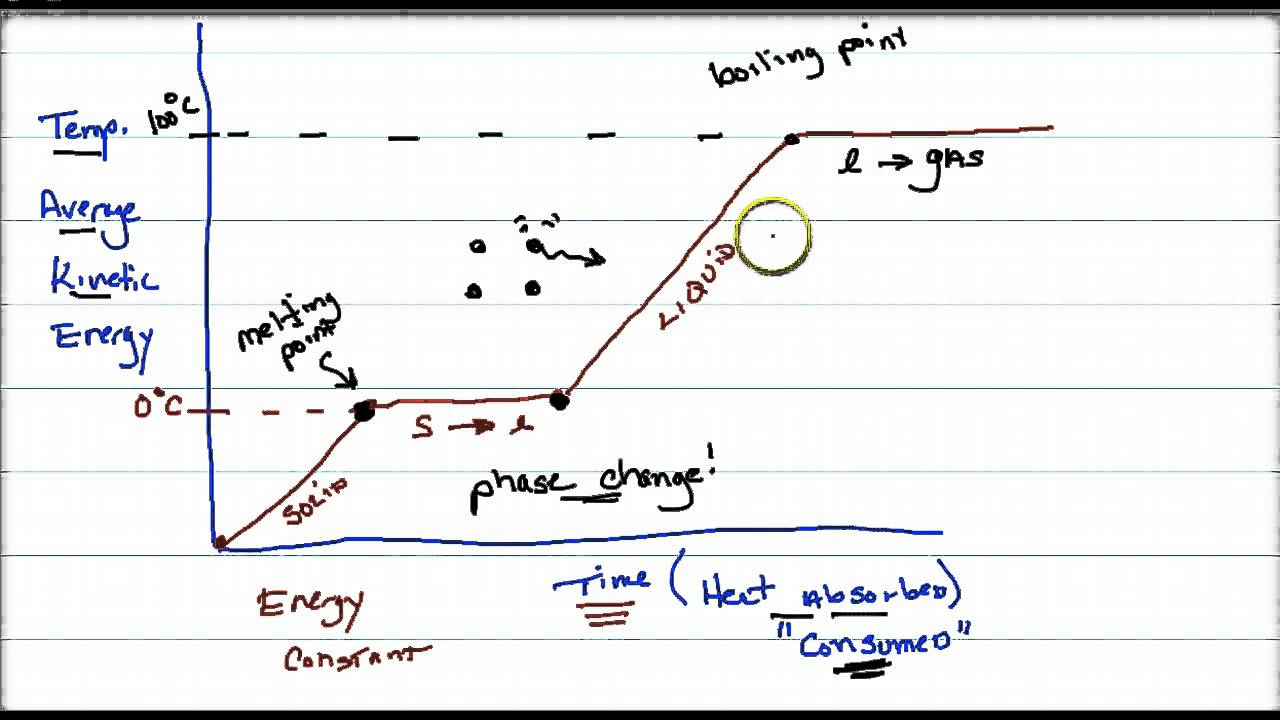 boiling point
100°C
Temp.
l → gas
Average
Kinetic
Energy
LIQUID
melting
point
0°C
S → l
phase change!
SOLID
Energy
Constant
Time (Heat Absorbed)
"Consumed"